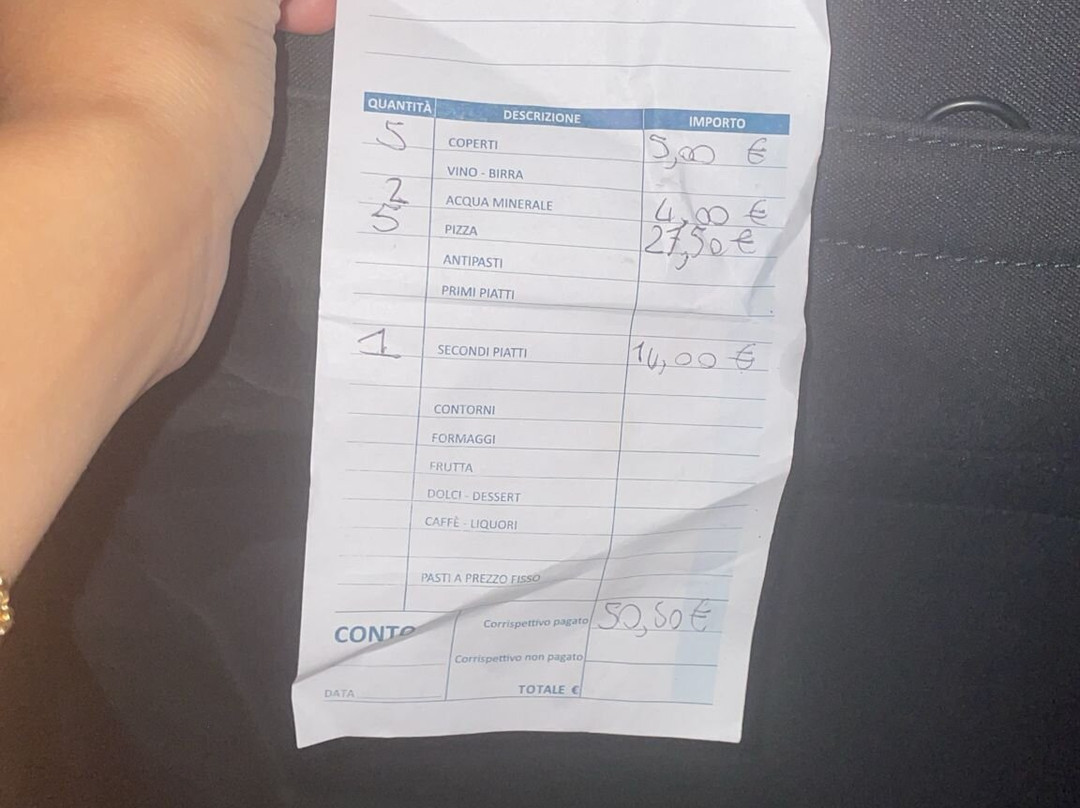 QUANTITÀ DESCRIZIONE IMPORTO
5 COPERTI 5,00 €
VINO - BIRRA
2 ACQUA MINERALE 4,00 €
5 PIZZA 27,50 €
ANTIPASTI
PRIMI PIATTI
1 SECONDI PIATTI 14,00 €
CONTORNI
FORMAGGI
FRUTTA
DOLCI - DESSERT
CAFFÈ - LIQUORI
PASTI A PREZZO FISSO
CONTO Corrispettivo pagato 50,50 €
Corrispettivo non pagato
DATA TOTALE €